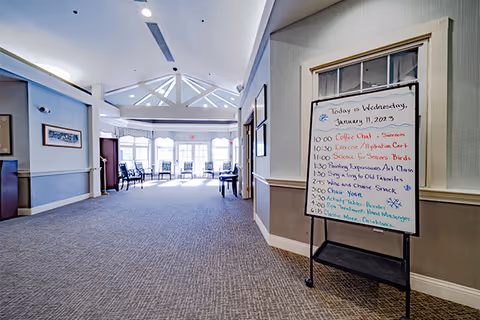 Today is Wednesday,
January 11, 2023
10:00 Coffee Chat - Sunroom
10:30 Exercise / Hydration Cart
11:00 Science for Seniors: Birds
1:30 Painting Expressions Art Class
1:30 Sing a long to Old Favorites
Wine and Cheese Snack
3:00 Chair Yoga
Activity Table: Puzzles
Spa Treatment: Hand Massages
6:15 Classic Movie: Casablanca